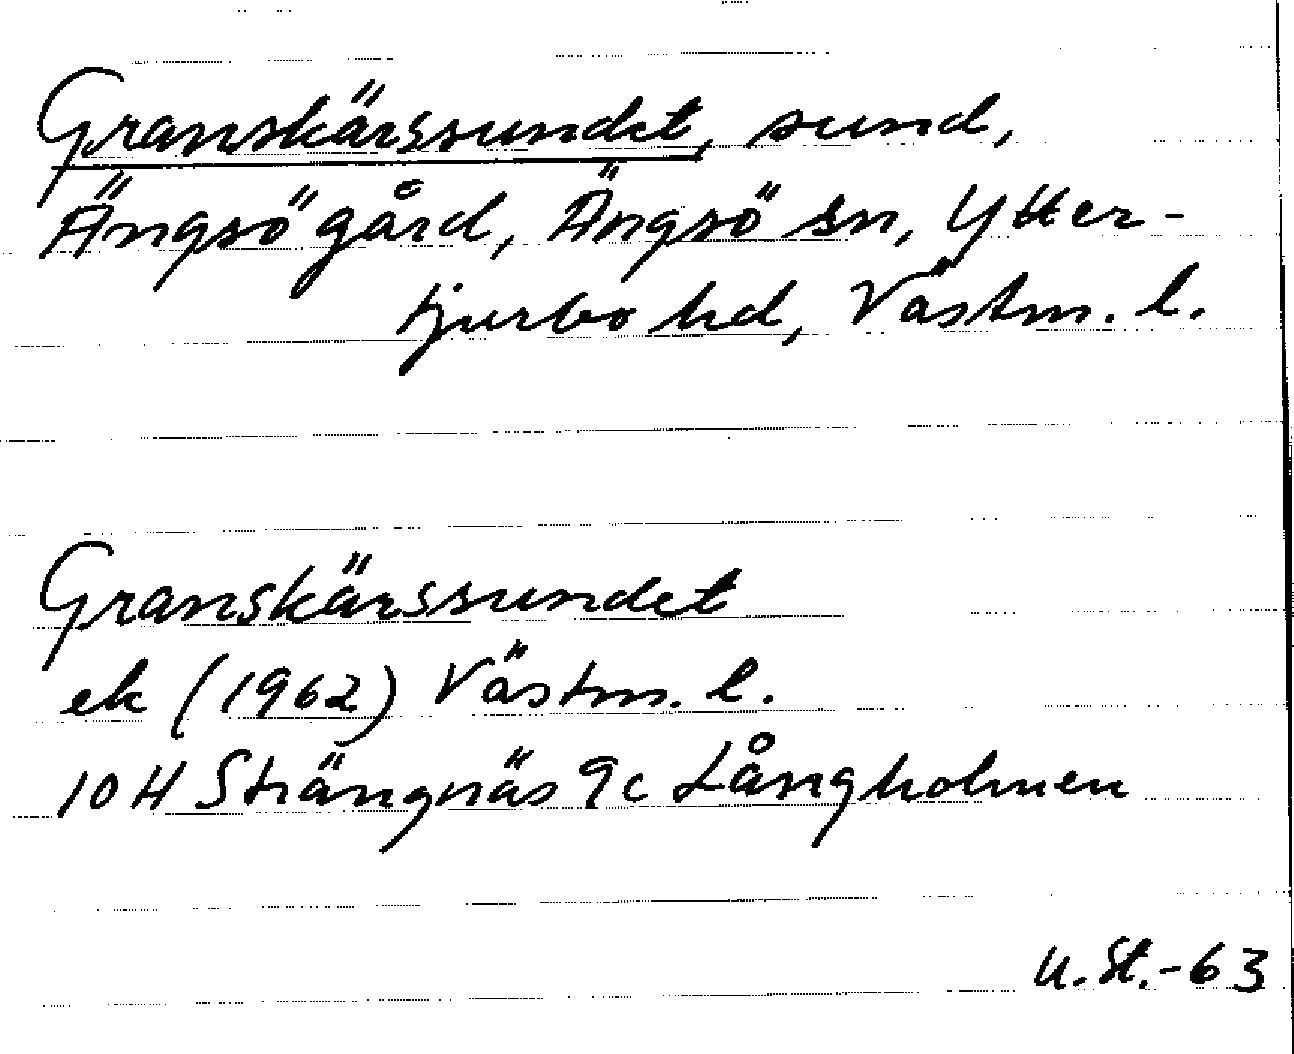 Granskärssundet, sund,
Ängsö gård, Ängsö sn, Ytter-
tjurbo hd, Västm. l.
Granskärssundet
ek (1962) Västm. l.
10 H Strängnäs 9c Långholmen
U. St. -63